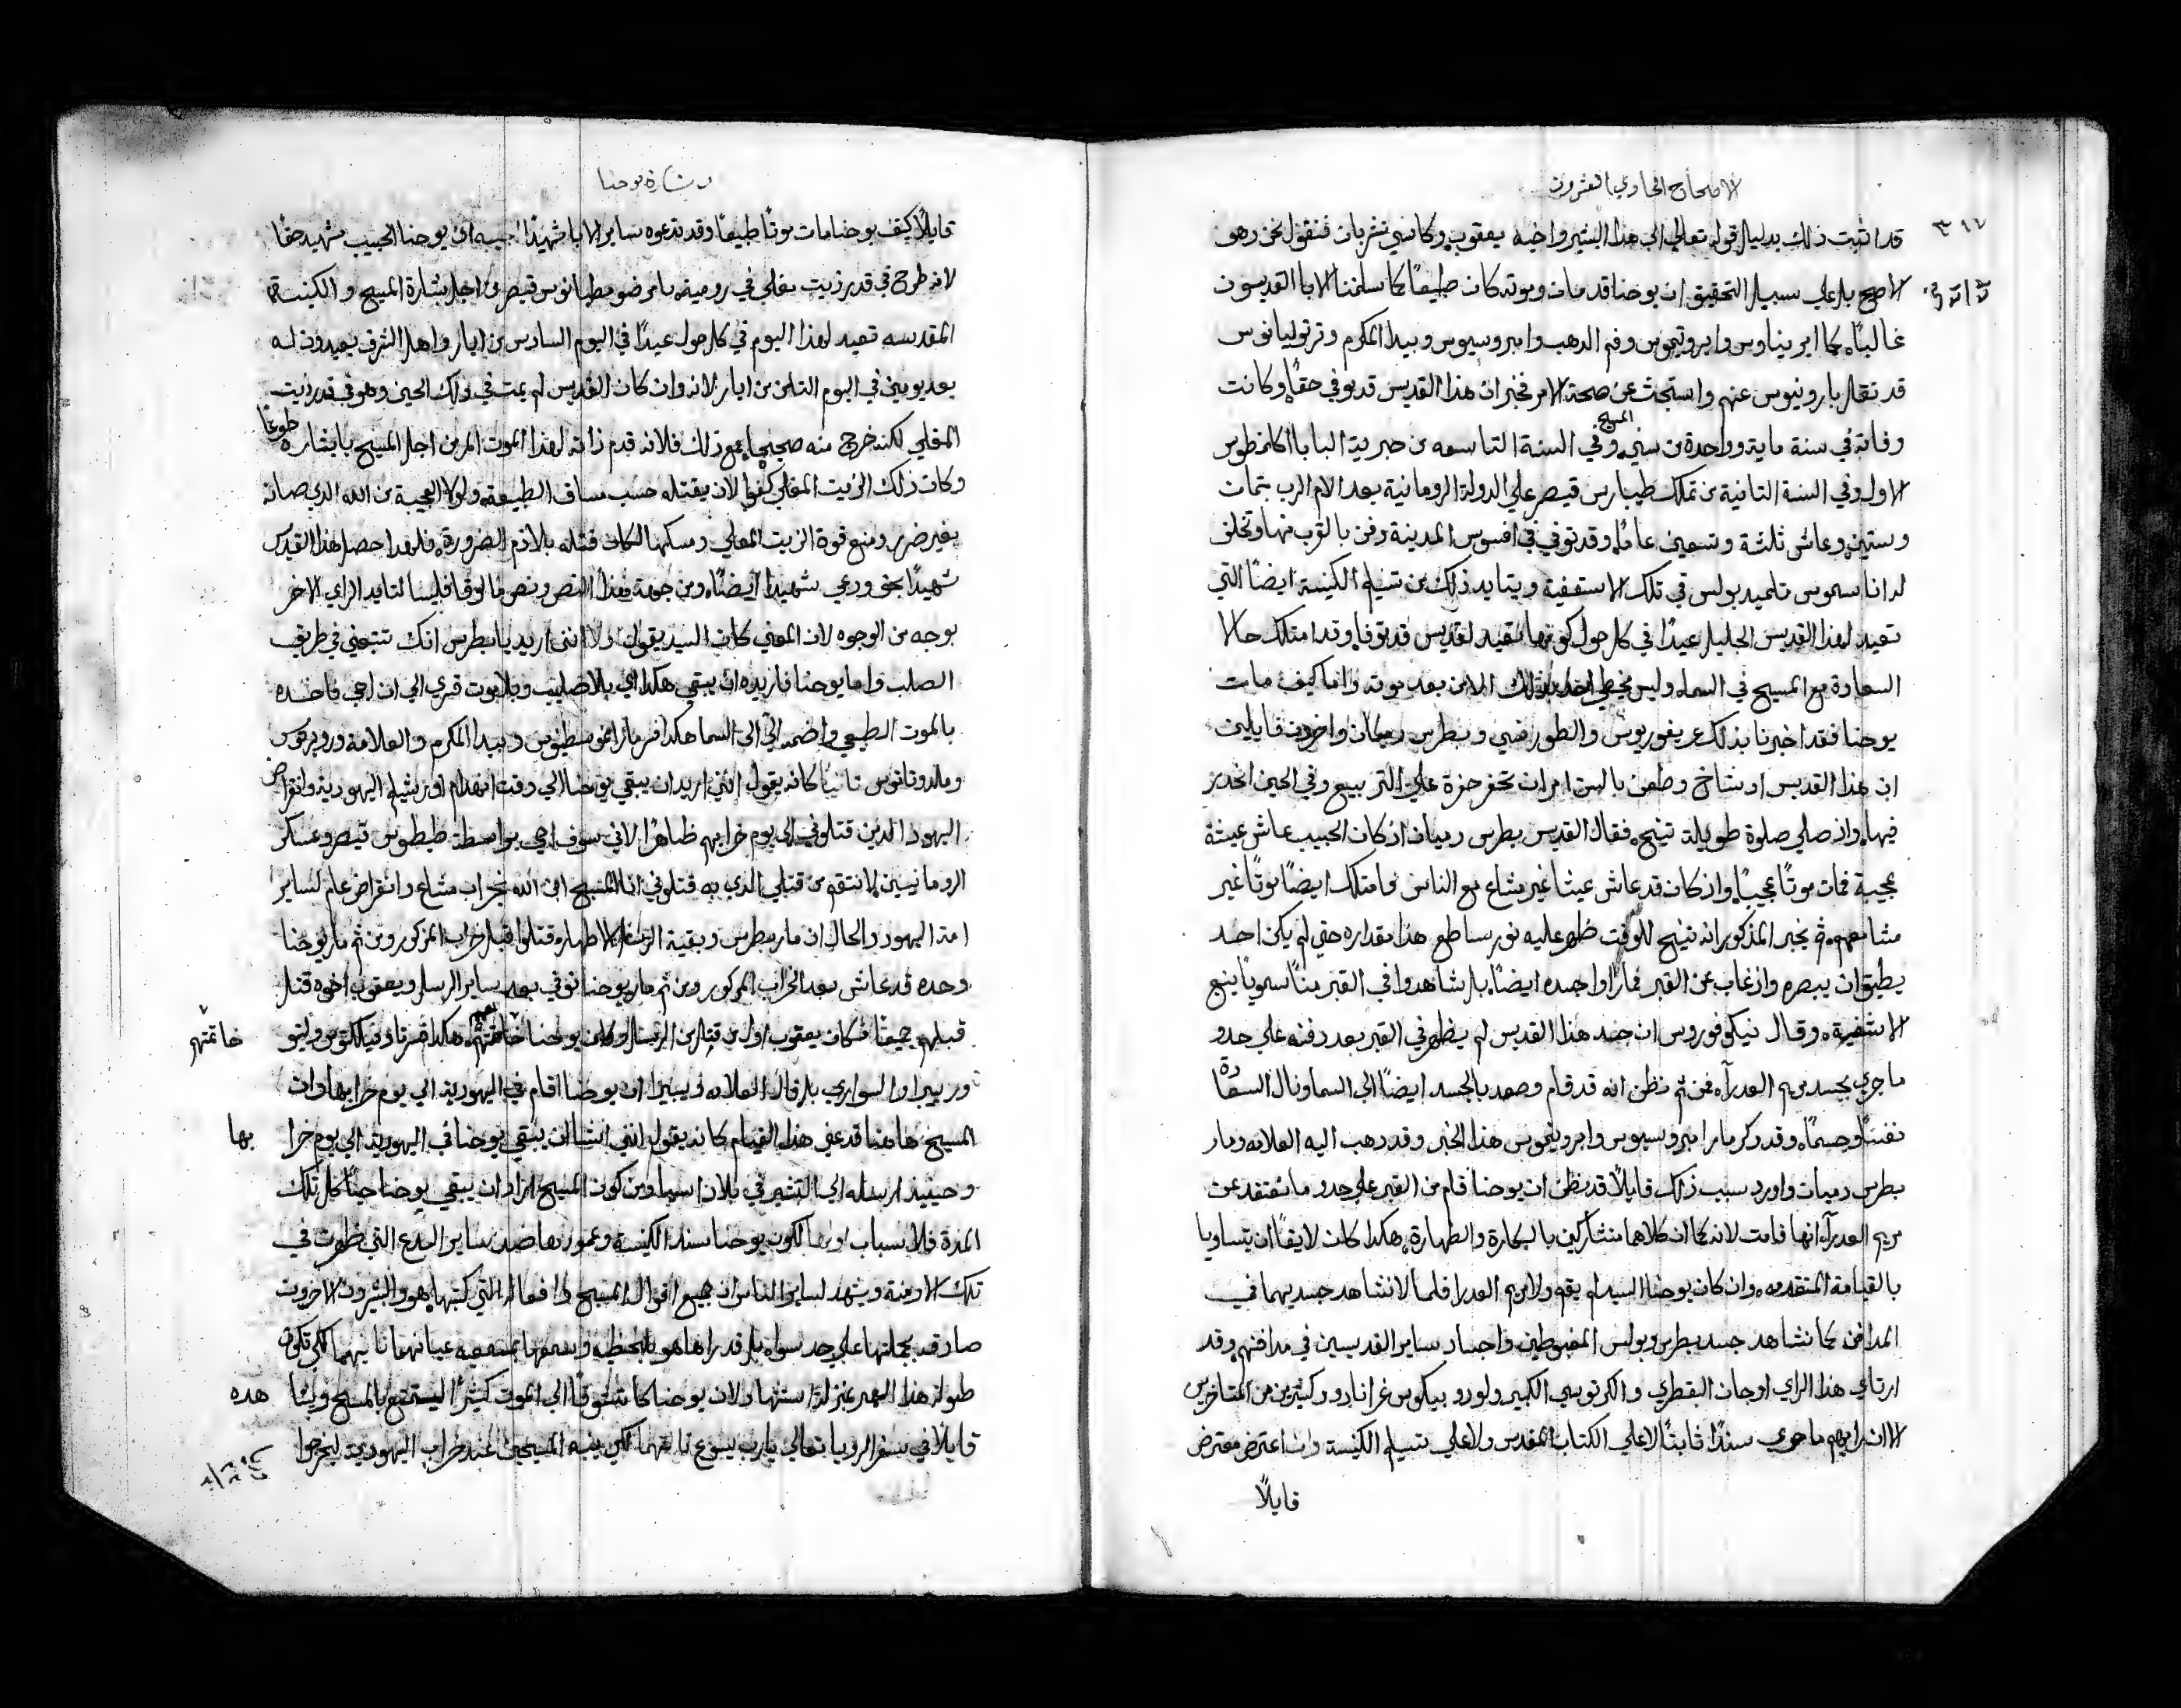 الاصحاح الحادي العشرون
٣١٧
قد اثبت ذلك بدليل قوله تعالى الى هذا البشير واخيه يعقوب وكاسي تشربان فنقول نحن وهو
الاصح بل على سبيل التحقيق ان يوحنا قد مات وموته كان طبيعيًا كما سلمنا الابا القديسون
غالبًا كما ايريناوس وايرونيموس وفم الدهب وامبروسيوس وبيدا المكرم وترتوليانوس
قد نقل بارونيوس عنهم واستبحث عن صحة الامر فخبر ان هذا القديس قد توفي حقًا وكانت
وفاته في سنة ماية وواحدة من سني المسيح وفي السنة التاسعه من حبرية البابا اكلمنطوس
الاول وفي السنة التانية من تملك طيبارس قيصر علي الدولة الرومانية بعد الام الرب بتمان
وستين وعاش ثلثة وتسعين عامًا وقد توفي في افسوس المدينة ودفن بالقرب منها وتخلف
له اناسموس تلميد بولس في تلك الاسقفية ويتايد ذلك من تسليم الكنيسة ايضًا التي
تعيد لهذا القديس الجليل عيدًا في كل حول كونها تعيد لقديس قد توفا وقد امتلك حالا
السعادة مع المسيح في السما وليس يحظي احد بذلك الا من بعد موته واما كيف مات
يوحنا فقد اخبرنا بذلك غريغوريوس والطورزني وبطرس دميان واخرون قايلين
ان هذا القديس اد شاخ وطعن بالسن امر ان تحفر حفرة علي التربيع وفي الحين انحدر
فيها واذ صلي صلوة طويلة تنيح فقال القديس بطرس دميان اذ كان الحبيب عاش عيشة
عجيبة فمات موتًا عجيبًا واذ كان قد عاش عيشا غير مشاع مع الناس فامتلك ايضًا موتًا غير
مشاعهم ثم يخبر المذكور انه تنيح للوقت ظهر عليه نور ساطع هذا مقداره حتي لم يكن احد
يطيق ان يبصره واذ غاب عن القبر فما راوا جسده ايضًا بل شاهدوا في القبر منًا سمويًا ينبع
الاشفية وقال نيكوفوروس ان جسد هذا القديس لم يظهر في القبر بعد دفنه علي حدو
ما جري بجسد مريم العدرآء فمن ثم نظن انه قد قام وصعد بالجسد ايضًا الي السما ونال السعادة
نفسًا وجسمًا وقد ذكر مار امبروسيوس وايرونيموس هذا الخبر وقد دهب اليه العلامه ومار
بطرس دميان واورد سبب ذلك قايلًا قد نظن ان يوحنا قام من القبر علي حدو ما نعتقد عن
مريم العدرآء انها قامت لانه كما ان كلاهما متشاركين بالبكارة والطهارة هكدا كان لايقًا ان يتساويا
بالقيامة المتقدمه وان كان يوحنا السيد لم يقم ولا مريم العدرا فلما لا نشاهد جسديهما في
المدافن كما نشاهد جسد بطرس وبولس المغبوطين واجساد ساير القديسين في مدافنهم وقد
ارتاي هذا الراي اوجان البقطري والكرتوسي الكبير ولودوبيكوس غرانادو وكثيرين من المتاخرين
الا ان رايهم ما حوي سندًا ثابتًا لا علي الكتاب المقدس ولا علي تسليم الكنيسة وان اعترض معترض
قايلًا
وبشارة يوحنا
قايلًا كيف يوحنا مات موتًا طبيعيًا وقد تدعوه ساير الابا شهيدًا ان يوحنا الحبيب شهيد حقًا
لانه طرح في قدر زيت مغلي في رومية بامر ضوميطيانوس قيصر من اجل بشارة المسيح والكنيسة
المقدسه تعيد لهذا اليوم في كل حول عيدًا في اليوم السادس من ايار واهل الشرق يعيدون له
بعد يومين في اليوم التامن من ايار لانه وان كان القديس لم يمت في ذلك الحين وهو في قدر زيت
المغلي لكنه خرج منه صحيحًا فمع ذلك فلانه قدم ذاته لهذا الموت المر من اجل المسيح بايثاره طوعًا
وكان ذلك الزيت المغلي كفوًا لان يقتله حسب مساق الطبيعة ولولا العجيبة من الله الدي صانه
بغير ضرر ومنع قوة الزيت المغلي ومسكها لكان قتله بلازم الضرورة فلهدا حصل هذا القديس
شهيدًا بحق ودعي شهيدًا ايضًا ومن جهة هذا النص ونص مار لوقا فليسا لتايد الراي الاخر
بوجه من الوجوه لان المعني كان السيد يقول اولا انني اريد يا بطرس انك تتبعني في طريق
الصلب واما يوحنا فاريده ان يبقي هكدا اي بلا صليب وبلا موت قسري الي ان اجي فاخده
بالموت الطبيعي واضمه الي الي السما هكدا فسر مار اغوسطينوس وبيدا المكرم والعلامة وروبرتوس
وملدوناتوس تانيًا كانه يقول انني اريد ان يبقي يوحنا الي وقت انهدام اورشليم اليهودية وانقراض
اليهود الدين قتلوني الي يوم خرابهم ظاهرًا لاني سوف اجي بواسطة طيطوس قيصر وعسكر
الرومانيين لانتقم من قتلي الدي به قتلوني انا المسيح ابن الله بخراب مشاع وانقراض عام لساير
امة اليهود والحال ان مار بطرس وبقية الرسل الاطهار قتلوا قبل خراب المذكور ومن ثم مار يوحنا
وحده قد عاش بعد الخراب المذكور ومن ثم مار يوحنا توفي بعد ساير الرسل ويعقوب اخوه قتل
قبلهم جميعًا فكان يعقوب اول من قتل من الرسل وكان يوحنا خاتمتهم هكدا فسر تاوفيلكتوس وليتو
خاتمتهم
وريبيرا والسواري بل قال العلامه ريبيرا ان يوحنا اقام في اليهودية الي يوم خرابها وان
المسيح هاهنا قد عني هذا القيام كانه يقول انني اشا ان يبقي يوحنا في اليهودية الي يوم خرا بها
وحينيذ ارسله الي التبشير في بلاد اسيا ومن كون المسيح اراد ان يبقي يوحنا حيًا كل تلك
المدة فلاسباب اولها لكون يوحنا سند الكنيسة وعمودها ضد ساير البدع التي ظهرت في
تلك الازمنة ويشهد لساير الناس ان جميع اقوال المسيح وافعاله التي كتبها هو والمبشرون الاخرون
صادقه بجملتها علي حد سواء بل قد راها هو بلحظيه وسمعها بمسمعه عيانهما تانيهما لكي تكون
طولة هذا العمر بمنزلة استشهاد لان يوحنا كان متشوقًا الي الموت كثيرًا ليستمتع بالمسيح وبشا هده
قايلًا في سفر الرويا تعالى يا رب يسوع تالتهما لكي ينبه المسيحيين عند خراب اليهودية ليخرجوا